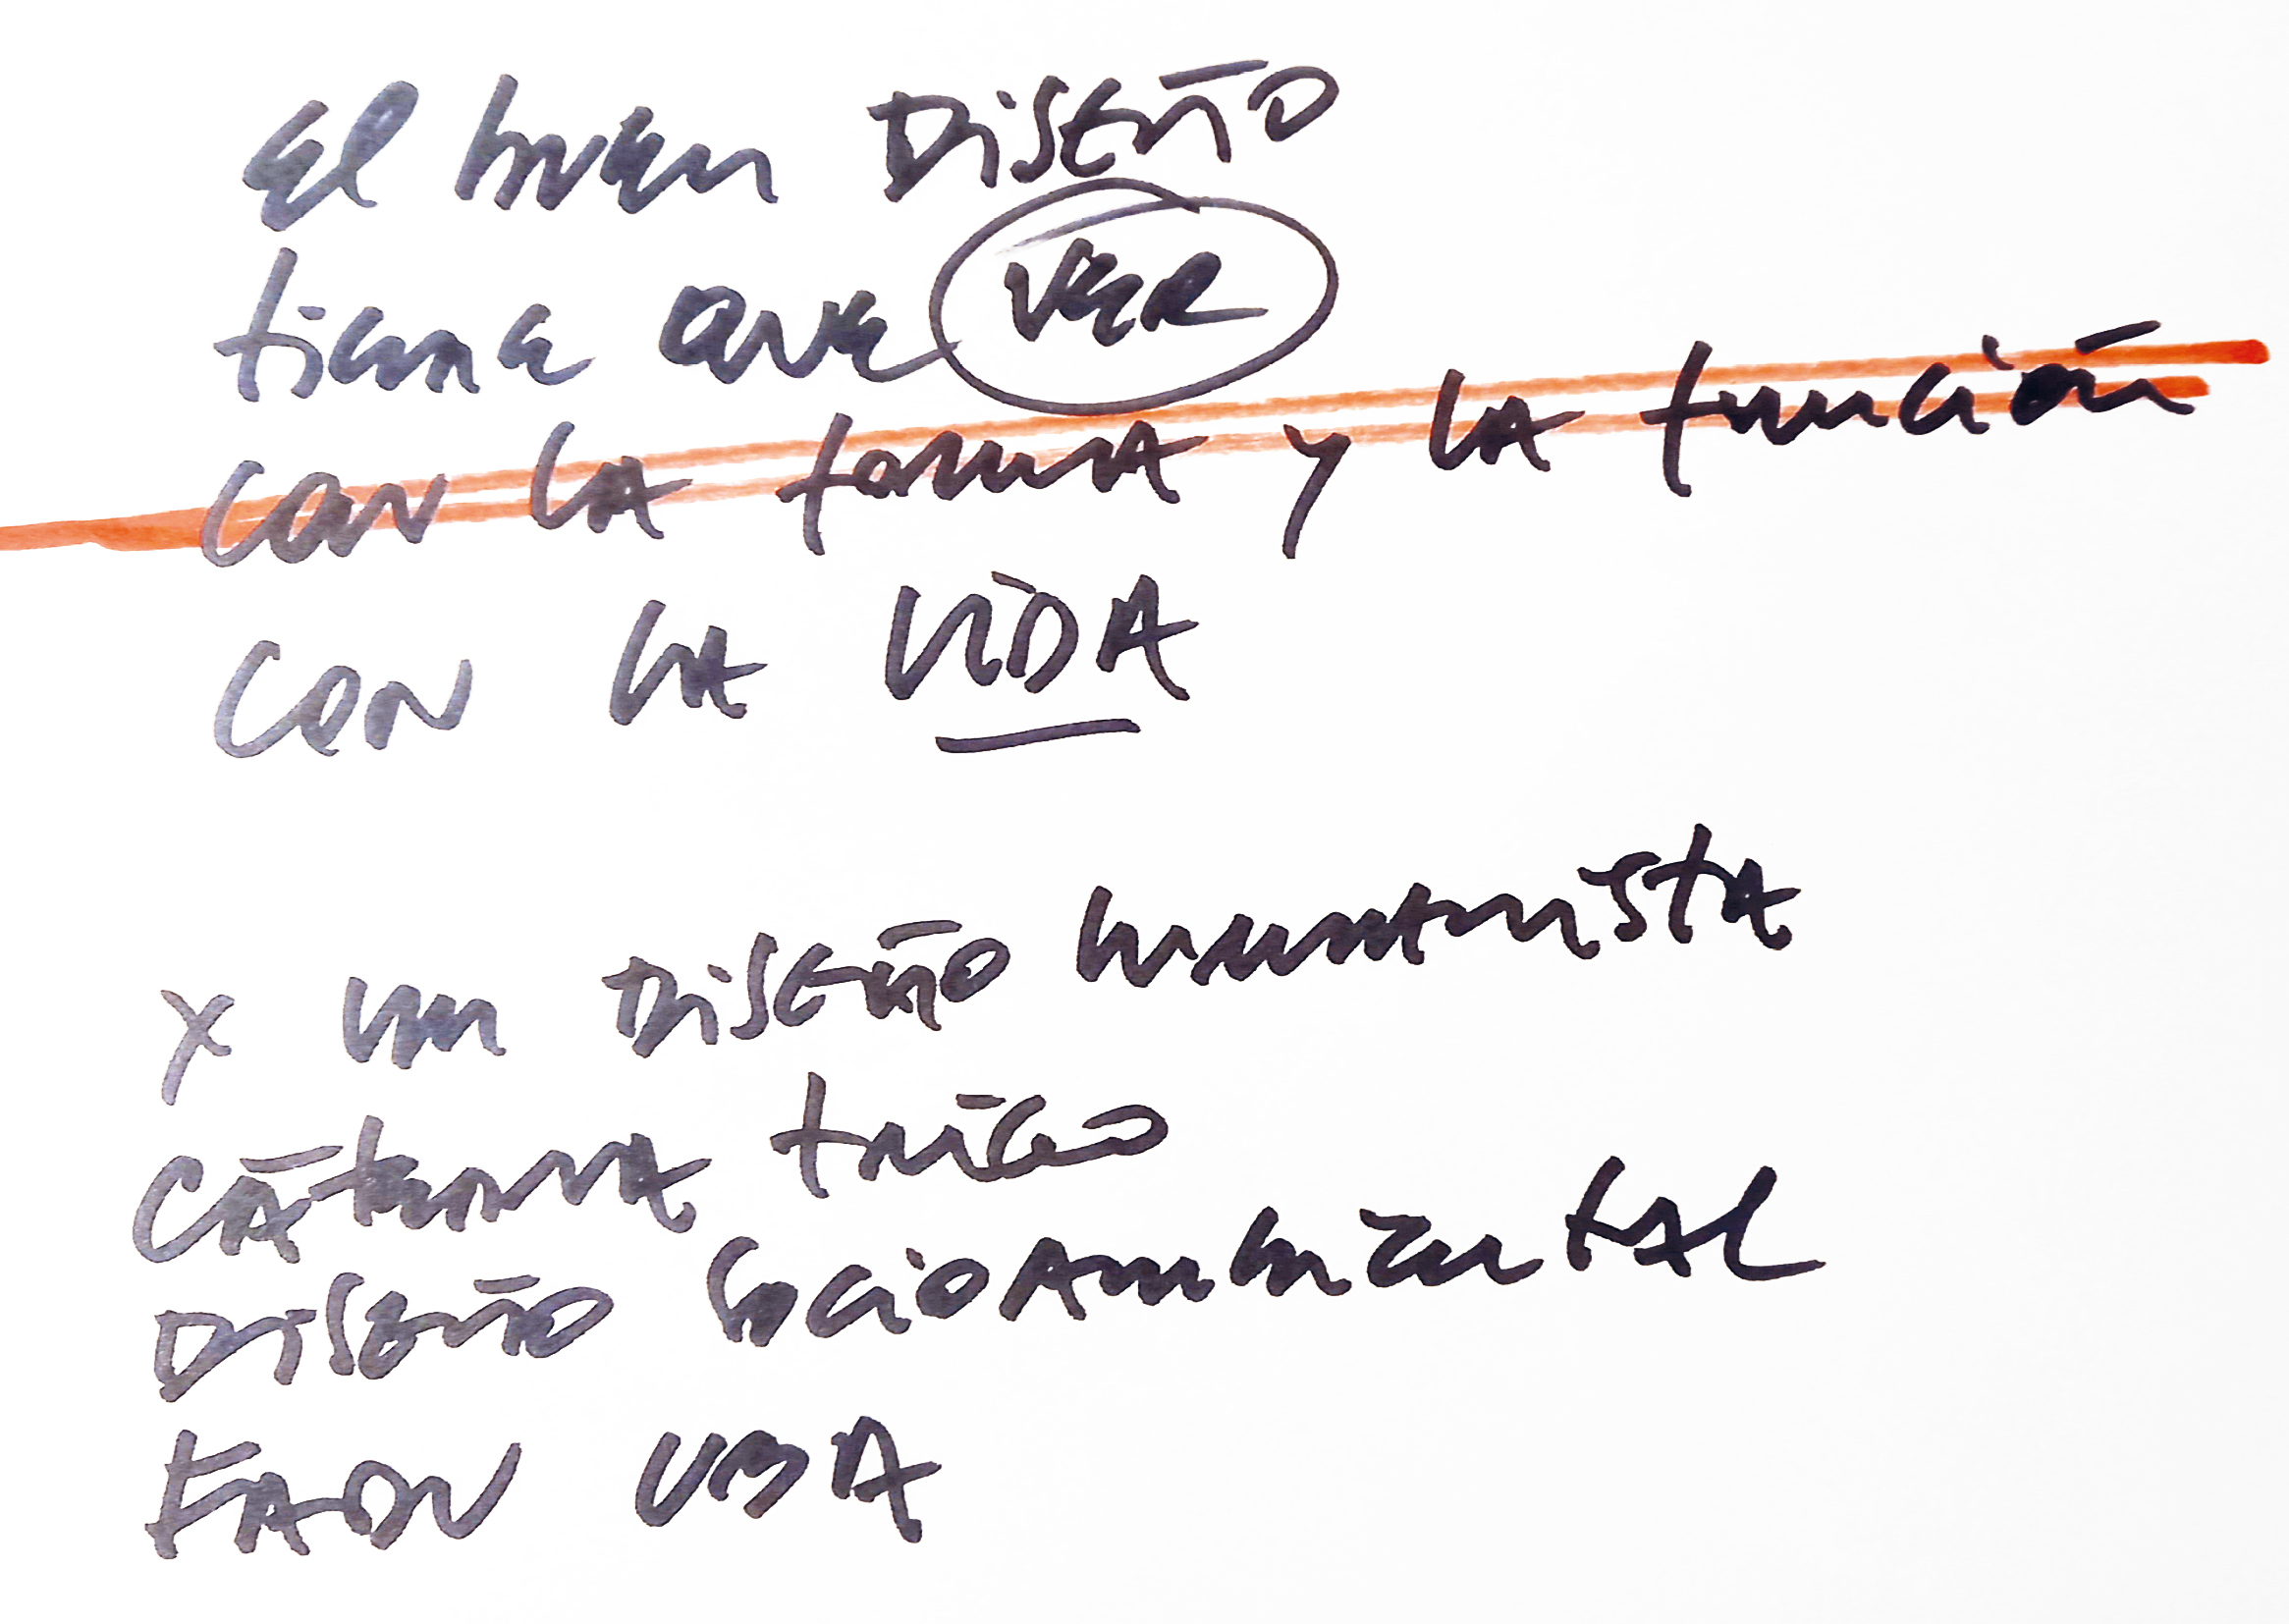 el buen DISEÑO
tiene que VER
con LA forma y LA función
CON LA VIDA
x un DISEÑO humanista
CÁtedra trigo
DISEÑO SocioAmbiental
FADU UBA